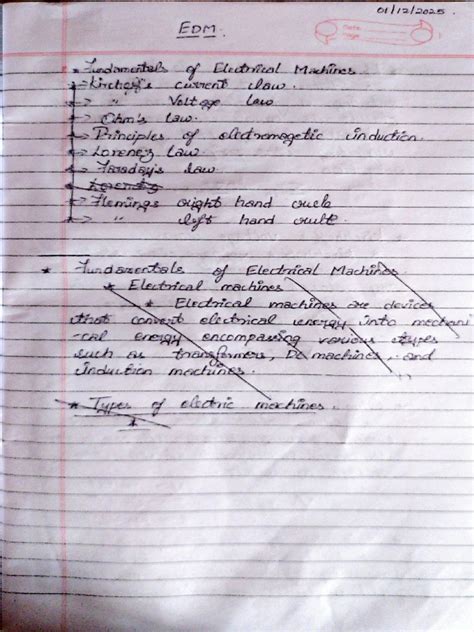 01/12/2025.
EDM.
Date:
Page:
* Fundamentals of Electrical Machines
*-> Kirchoff's current law.
*-> " Voltage law
*-> Ohm's law.
*-> Principles of electromagetic induction.
*-> Lorenez law.
*-> Faraday's law
*-> Flemings right hand rule
*-> " left hand rule
* Fundamentals of Electrical Machines.
* Electrical machines
* Electrical machines are devices
that convert electrical energy into mechani
-cal energy encompassing various types
such as transformers, Dc machines, and
induction machines.
* Types of electric machines.
*